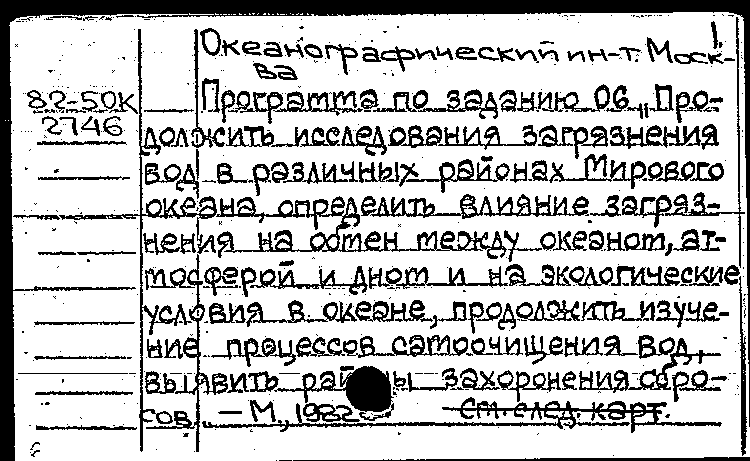 1
Океанографический ин-т. Моск-
ва
82-50К
2746
Программа по заданию 06 „Про-
должить исследования загрязнения
вод в различных районах Мирового
океана, определить влияние загряз-
нения на обмен между океаном, ат-
мосферой и дном и на экологические
условия в океане, продолжить изуче-
ние процессов самоочищения вод,
выявить рай ны захоронения сбро-
сов. – М., 1982
См. след. карт.